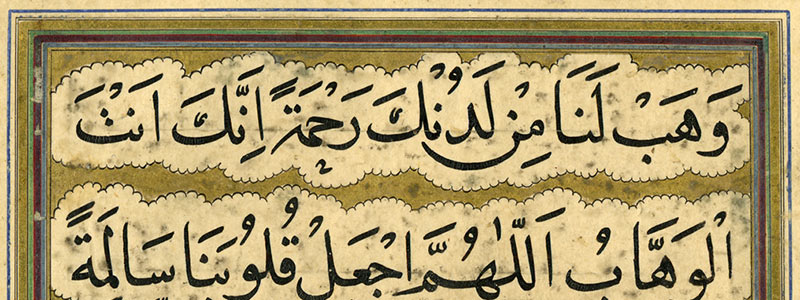 وَهَبْ لَنَا مِنْ لَدُنْكَ رَحْمَةً اِنَّكَ اَنْتَ
الْوَهَّابُ اَللّٰهُمَّ اجْعَلْ قُلُوبَنَا سَالِمَةً